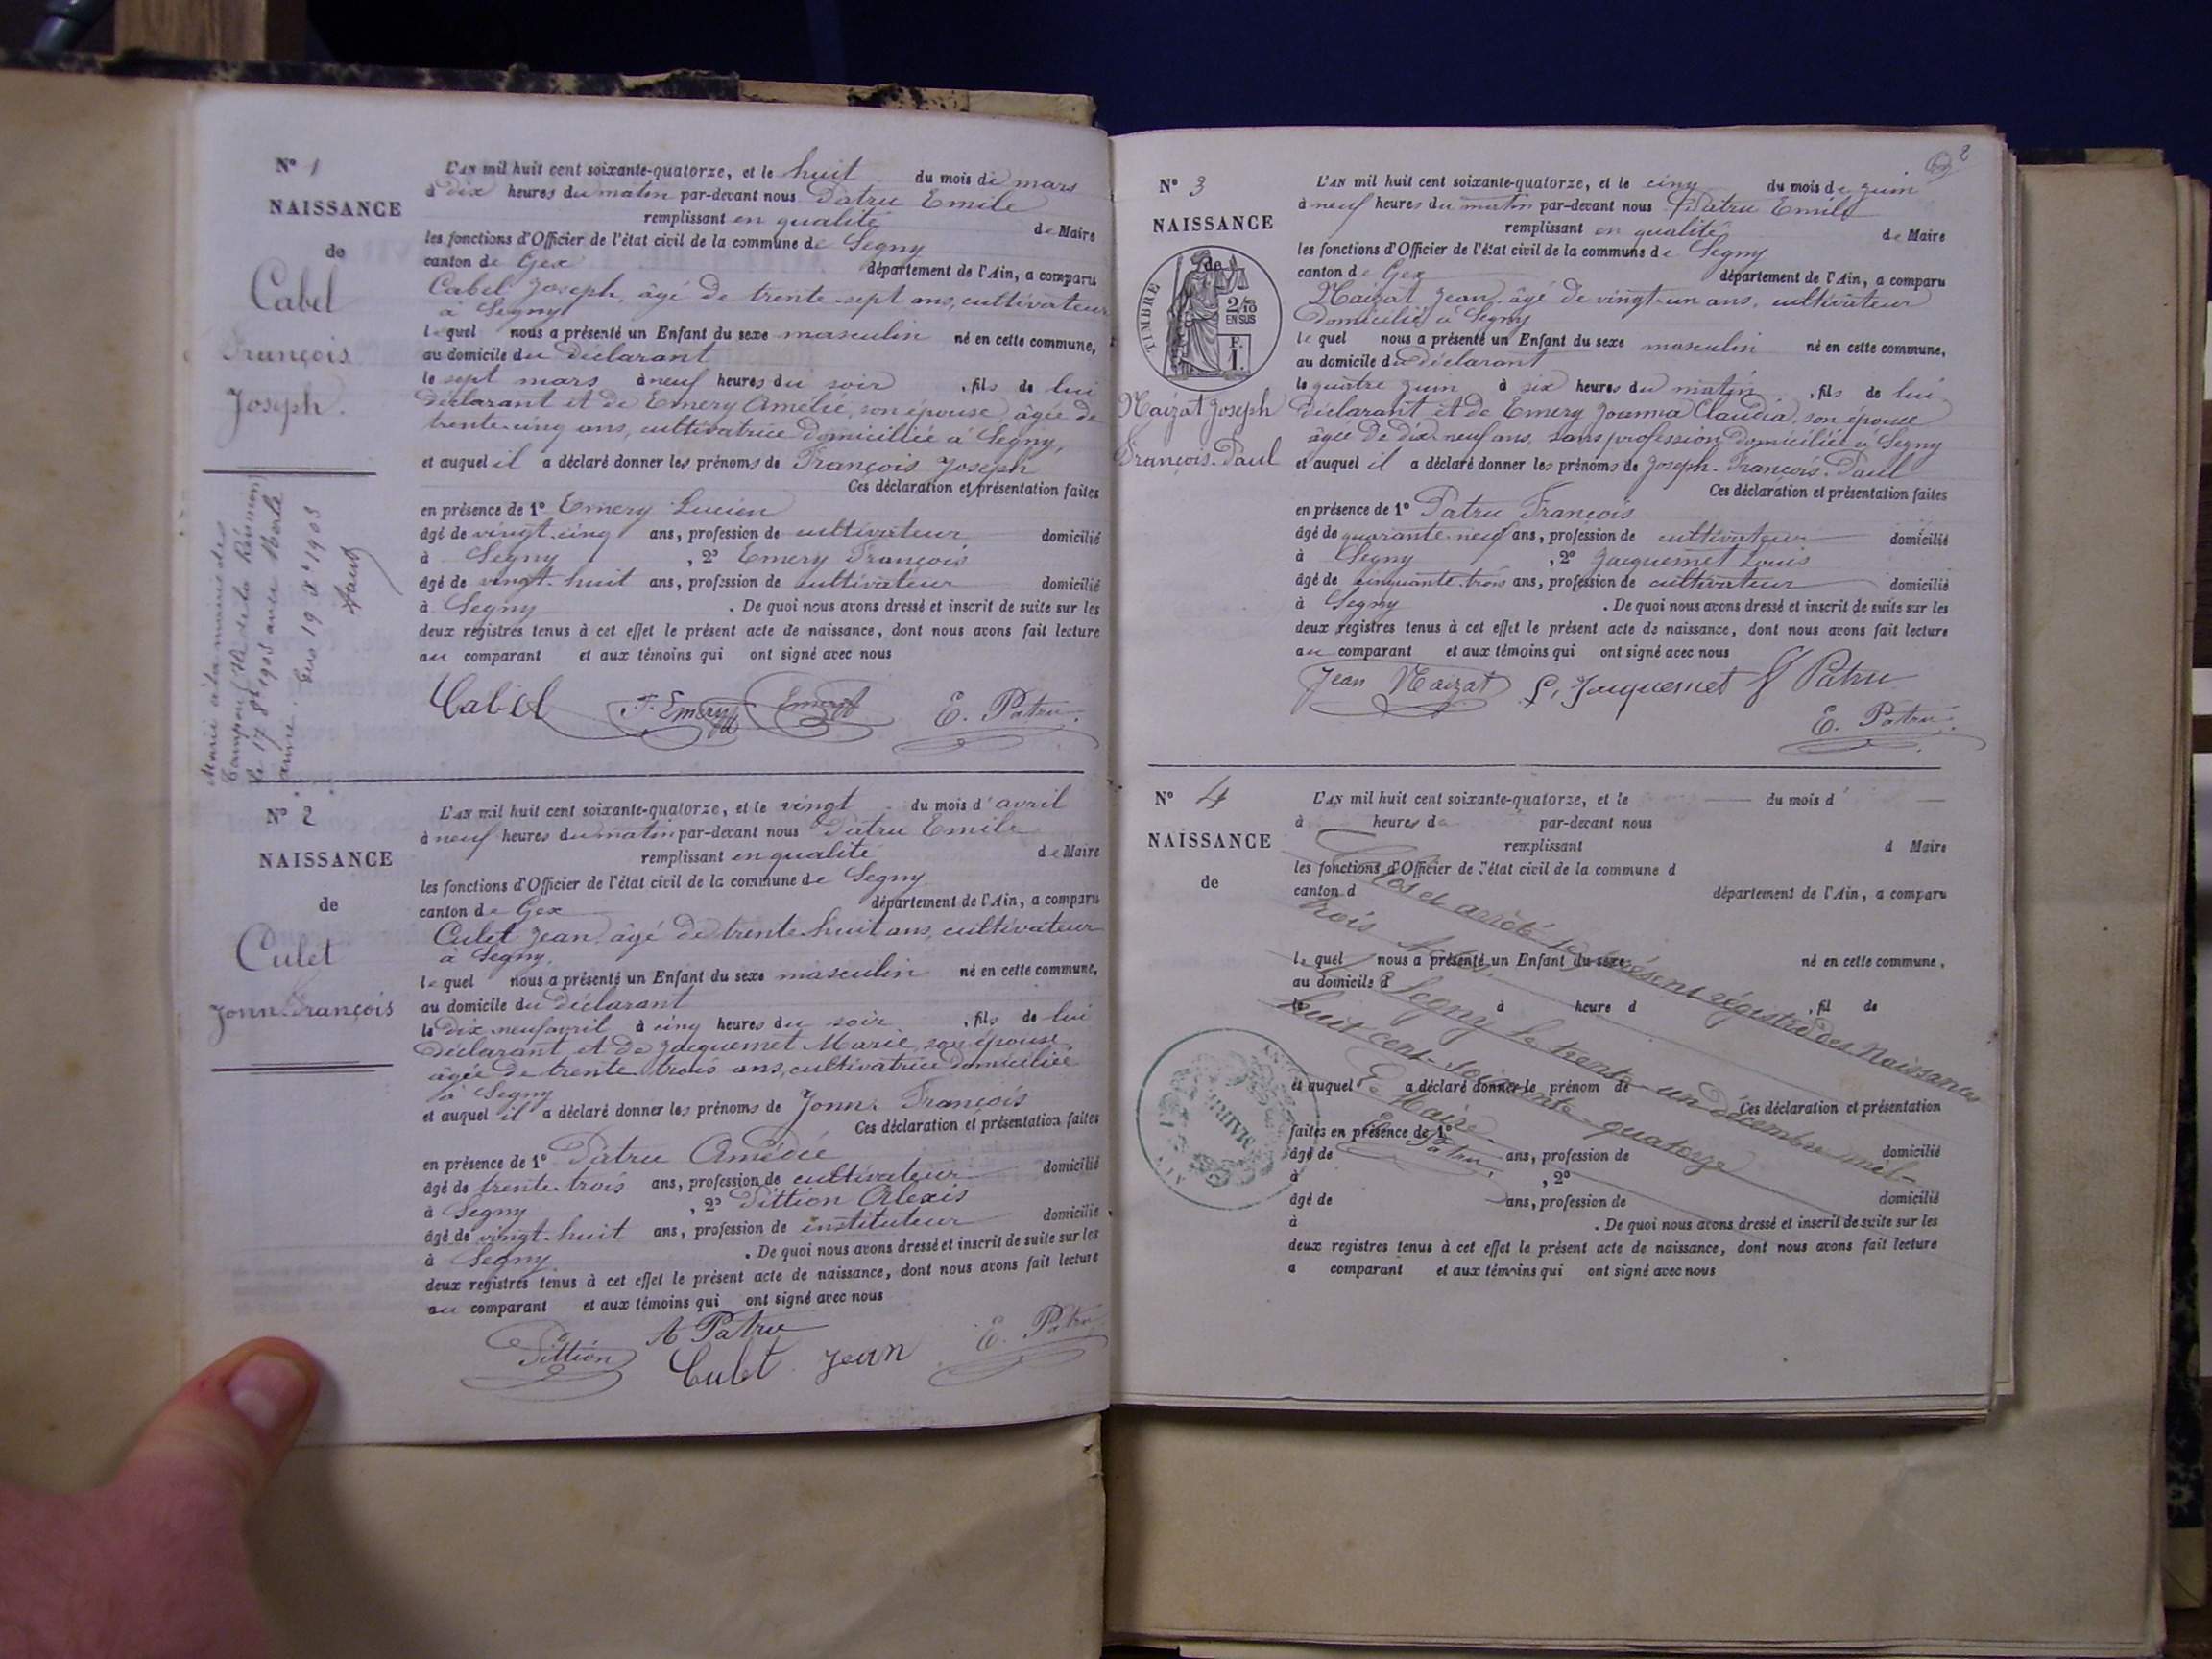 N° 1
NAISSANCE
de
Cabel
François
Joseph.
L'AN mil huit cent soixante-quatorze, et le huit du mois de mars
à dix heures du matin par-devant nous Patru Emile
remplissant en qualité de Maire
les fonctions d'Officier de l'état civil de la commune de Segny
canton de Gex département de l'Ain, a comparu
Cabel Joseph, âgé de trente-sept ans, cultivateur
à Segny
lequel nous a présenté un Enfant du sexe masculin né en cette commune,
au domicile du déclarant
le sept mars à neuf heures du soir, fils de lui
déclarant et de Emery Amélie, son épouse, âgée de
trente-cinq ans, cultivatrice domiciliée à Segny,
et auquel il a déclaré donner les prénoms de François Joseph
Ces déclaration et présentation faites
en présence de 1° Emery Lucien
âgé de vingt-cinq ans, profession de cultivateur domicilié
à Segny, 2° Emery François
âgé de vingt-huit ans, profession de cultivateur domicilié
à Segny. De quoi nous avons dressé et inscrit de suite sur les
deux registres tenus à cet effet le présent acte de naissance, dont nous avons fait lecture
au comparant et aux témoins qui ont signé avec nous
Cabel F. Emery Emery E. Patru.
Marié à la mairie du
Tampon (Ile de la Réunion)
le 17 8bre 1903 avec Merlo
19 Xe 1903
N° 2
NAISSANCE
de
Culet
Jonn-François
L'AN mil huit cent soixante-quatorze, et le vingt du mois d'avril
à neuf heures du matin par-devant nous Patru Emile
remplissant en qualité de Maire
les fonctions d'Officier de l'état civil de la commune de Segny
canton de Gex département de l'Ain, a comparu
Culet Jean, âgé de trente-huit ans, cultivateur
à Segny,
lequel nous a présenté un Enfant du sexe masculin né en cette commune,
au domicile du déclarant
le dix-neuf avril à cinq heures du soir, fils de lui
déclarant et de Jacquemet Marie, son épouse,
âgée de trente-trois ans, cultivatrice domiciliée
à Segny
et auquel il a déclaré donner les prénoms de Jonn-François
Ces déclaration et présentation faites
en présence de 1° Patru Amédée
âgé de trente-trois ans, profession de cultivateur domicilié
à Segny, 2° Pittion Alexis
âgé de vingt-huit ans, profession de instituteur domicilié
à Segny. De quoi nous avons dressé et inscrit de suite sur les
deux registres tenus à cet effet le présent acte de naissance, dont nous avons fait lecture
au comparant et aux témoins qui ont signé avec nous
A Patru
Pittion Culet Jean E. Patru
2
N° 3
NAISSANCE
de
TIMBRE
2/10
EN SUS
F.
1.
Maizat Joseph
François-Paul
L'AN mil huit cent soixante-quatorze, et le cinq du mois de juin
à neuf heures du matin par-devant nous Patru Emile
remplissant en qualité de Maire
les fonctions d'Officier de l'état civil de la commune de Segny
canton de Gex département de l'Ain, a comparu
Maizat Jean, âgé de vingt-un ans, cultivateur
domicilié à Segny
lequel nous a présenté un Enfant du sexe masculin né en cette commune,
au domicile du déclarant
le quatre juin à six heures du matin, fils de lui
déclarant et de Emery Joanna Claudia, son épouse
âgée de dix-neuf ans, sans profession domiciliée à Segny
et auquel il a déclaré donner les prénoms de Joseph-François-Paul
Ces déclaration et présentation faites
en présence de 1° Patru François
âgé de quarante-neuf ans, profession de cultivateur domicilié
à Segny, 2° Jacquemet Louis
âgé de cinquante-trois ans, profession de cultivateur domicilié
à Segny. De quoi nous avons dressé et inscrit de suite sur les
deux registres tenus à cet effet le présent acte de naissance, dont nous avons fait lecture
au comparant et aux témoins qui ont signé avec nous
Jean Maizat L, Jacquemet F Patru
E. Patru.
N° 4
NAISSANCE
de
L'AN mil huit cent soixante-quatorze, et le du mois d
à heures d par-devant nous
remplissant d Maire
les fonctions d'Officier de l'état civil de la commune d
canton d département de l'Ain, a comparu
lequel nous a présenté un Enfant du sexe né en cette commune,
au domicile d
le à heure d, fil de
et auquel a déclaré donner le prénom de
Ces déclaration et présentation
faites en présence de 1°
âgé de ans, profession de domicilié
à, 2°
âgé de ans, profession de domicilié
à. De quoi nous avons dressé et inscrit de suite sur les
deux registres tenus à cet effet le présent acte de naissance, dont nous avons fait lecture
a comparant et aux témoins qui ont signé avec nous
Clos et arrêté le présent régistre des Naissances
trois Actes.
Segny le trente-un décembre mil-
huit cent-soixante-quatorze
Le Maire
E. Patru.